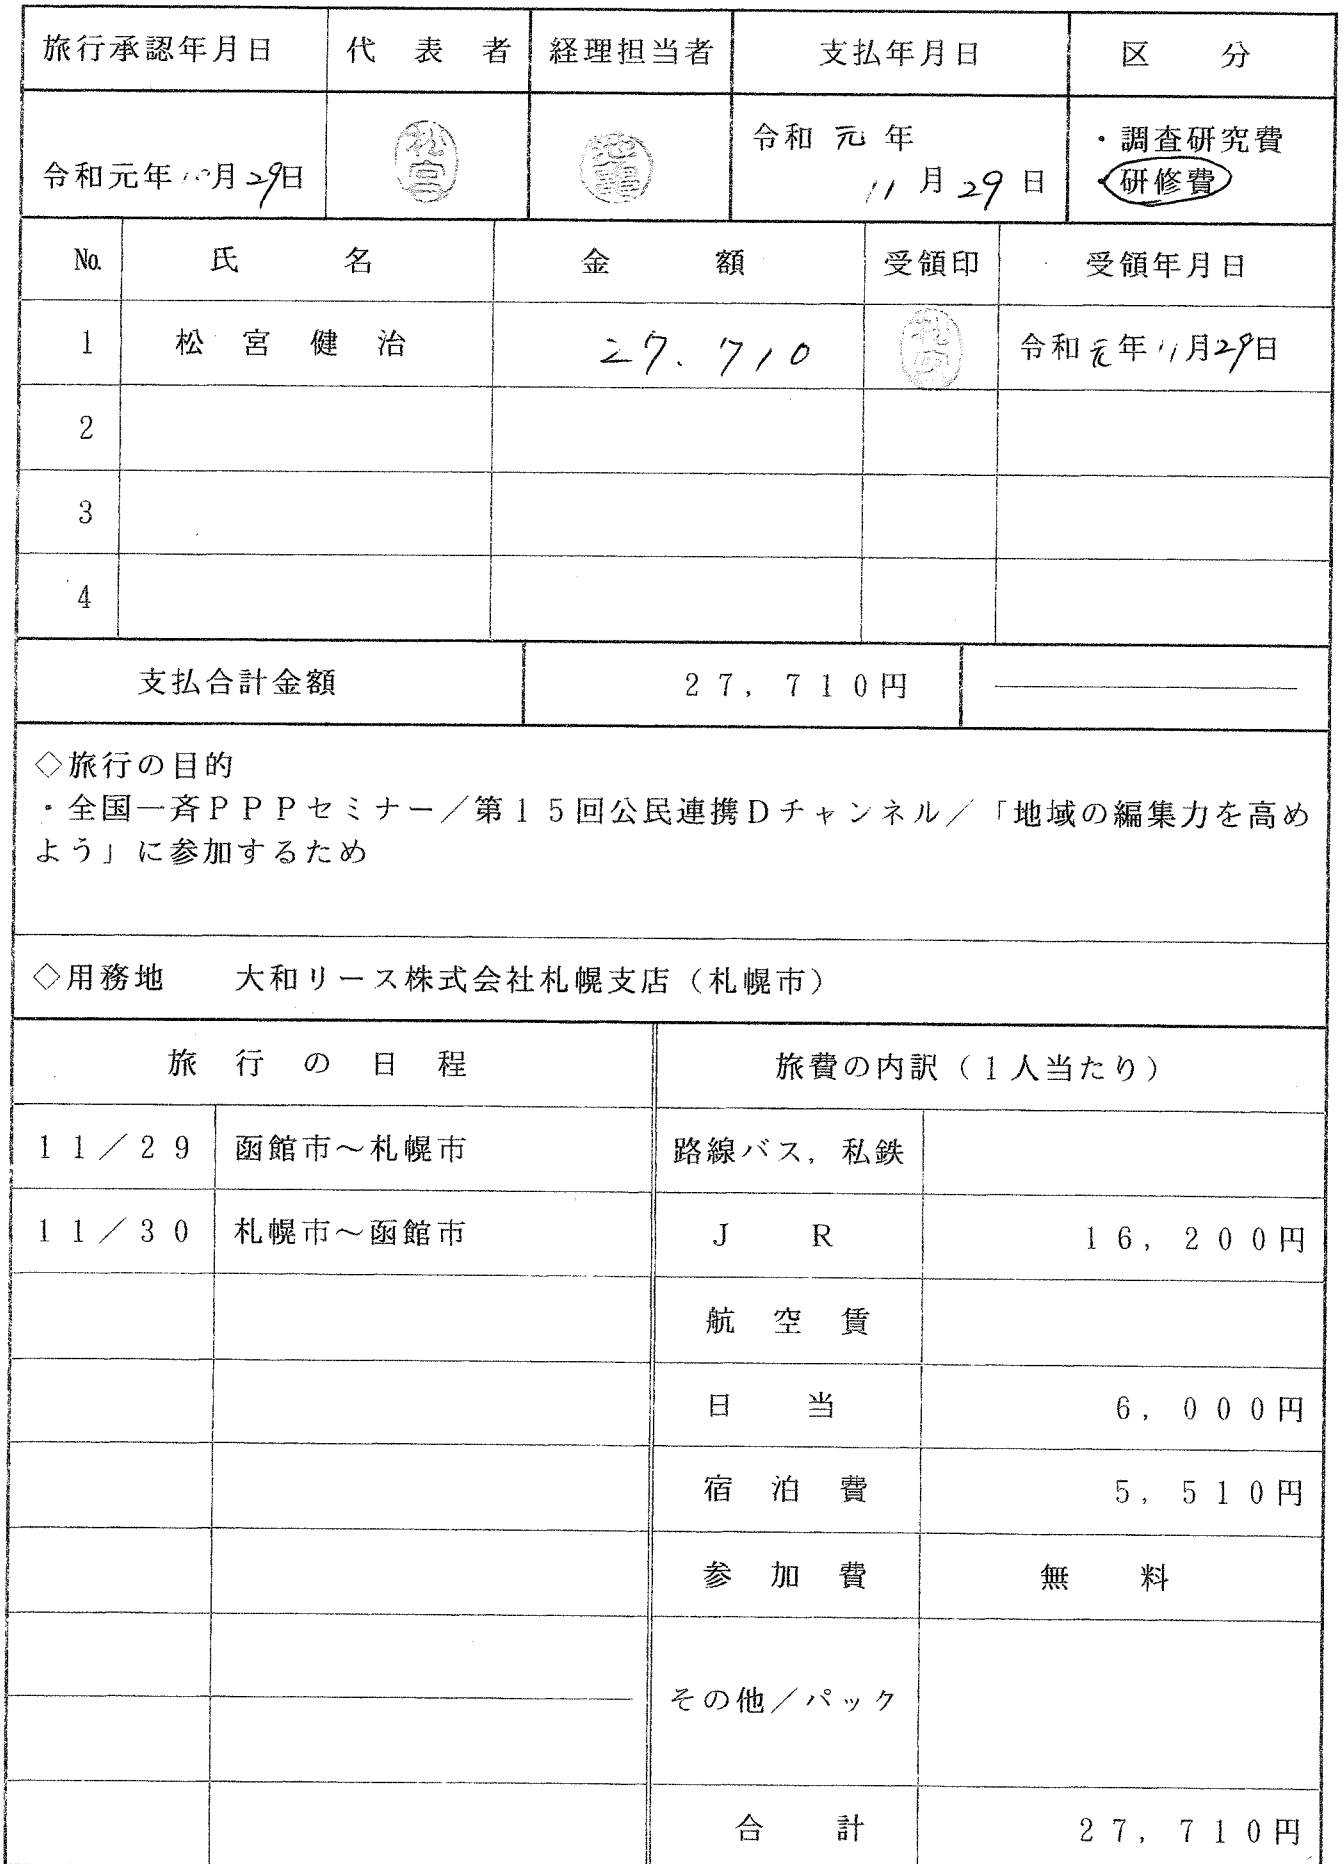 旅行承認年月日 代表者 経理担当者 支払年月日 区分
令和元年10月29日 松宮 池亀 令和元年11月29日 ・調査研究費
・研修費
No. 氏名 金額 受領印 受領年月日
1 松宮健治 27.710 松宮 令和元年11月29日
2
3
4
支払合計金額 27,710円
◇旅行の目的
・全国一斉PPPセミナー/第15回公民連携Dチャンネル/「地域の編集力を高め
よう」に参加するため
◇用務地 大和リース株式会社札幌支店(札幌市)
旅行の日程 旅費の内訳(1人当たり)
11/29 函館市~札幌市 路線バス,私鉄
11/30 札幌市~函館市 JR 16,200円
航空賃
日当 6,000円
宿泊費 5,510円
参加費 無料
その他/パック
合計 27,710円